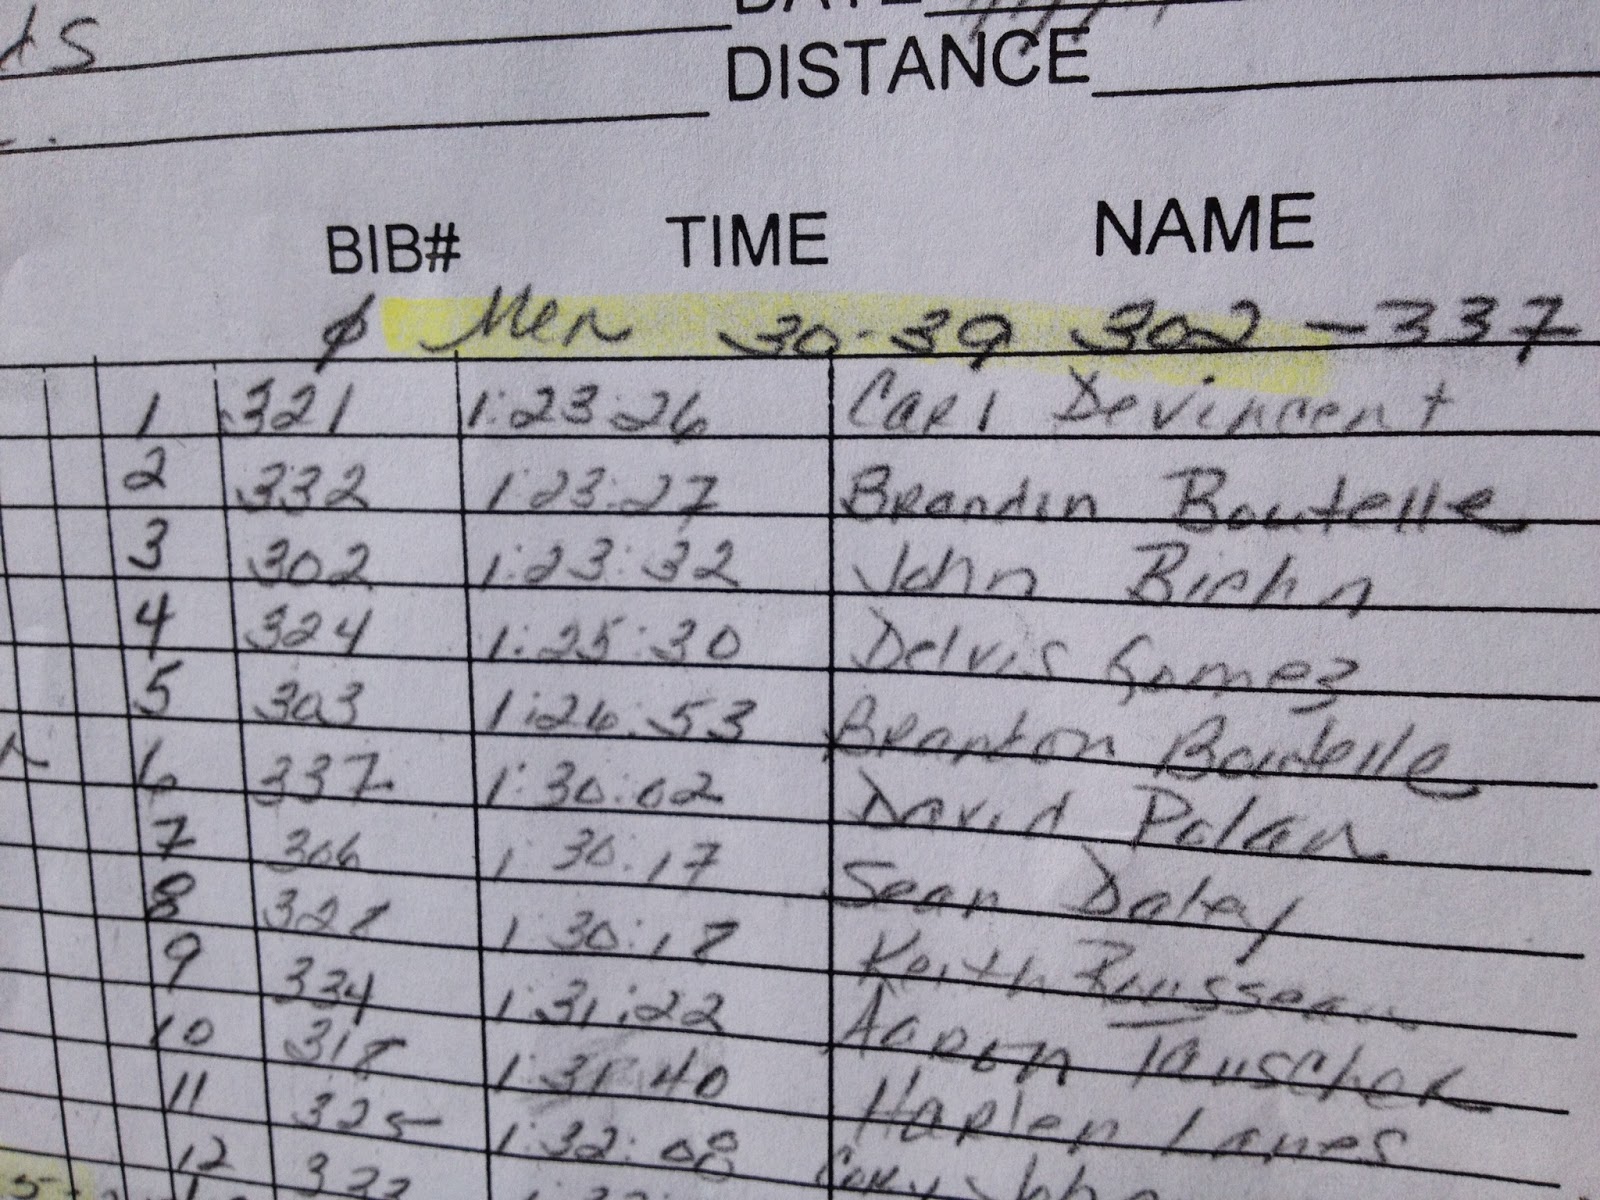 ds
DATE
DISTANCE
BIB# TIME NAME
Men 30-39 302-337
1 321 1:23:26 Carl Devincent
2 332 1:23:27 Brandin Boutelle
3 302 1:23:32 John Biehn
4 324 1:25:30 Delvis Gomez
5 303 1:26:53 Branton Boutelle
6 337 1:30:02 David Polan
7 306 1:30:17 Sean Daley
8 328 1:30:18 Keith Rousseau
9 334 1:31:22 Aaron Tauscher
10 318 1:31:40 Harlen Lanes
11 325 1:32:08 Cory
12